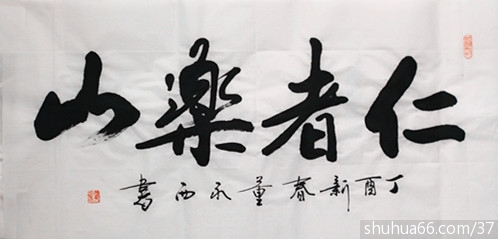 仁者樂山
丁酉新春董永西書
shuhua66.com/37